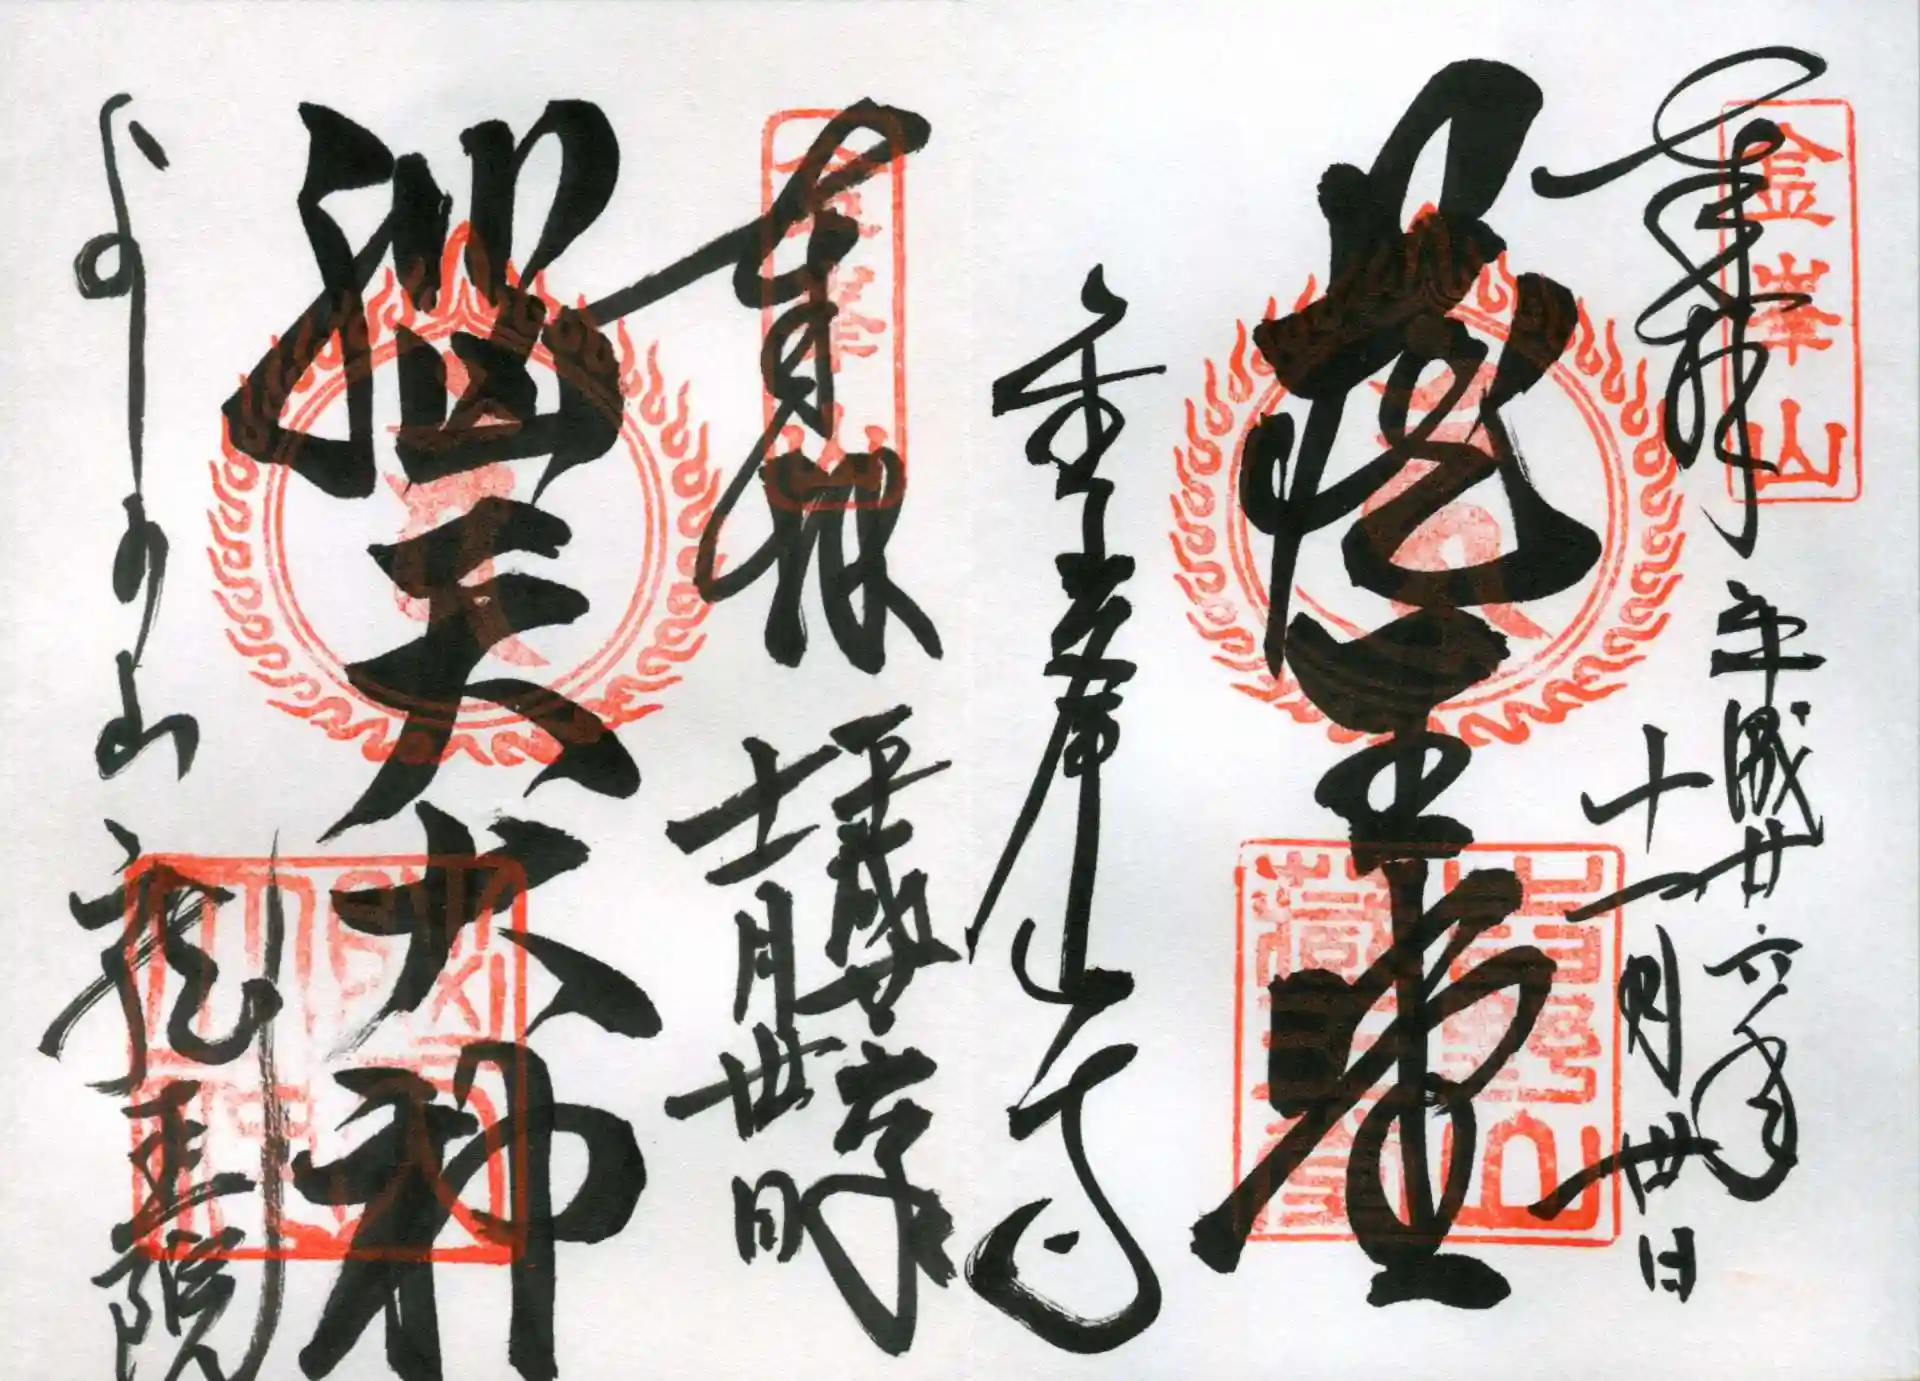 奉拝
金峯山
平成廿六年
十一月廿日
蔵王堂
金峯山寺
奉拝
金峯山
平成廿六年
十一月廿日
脳天大神
よしの山
龍王院